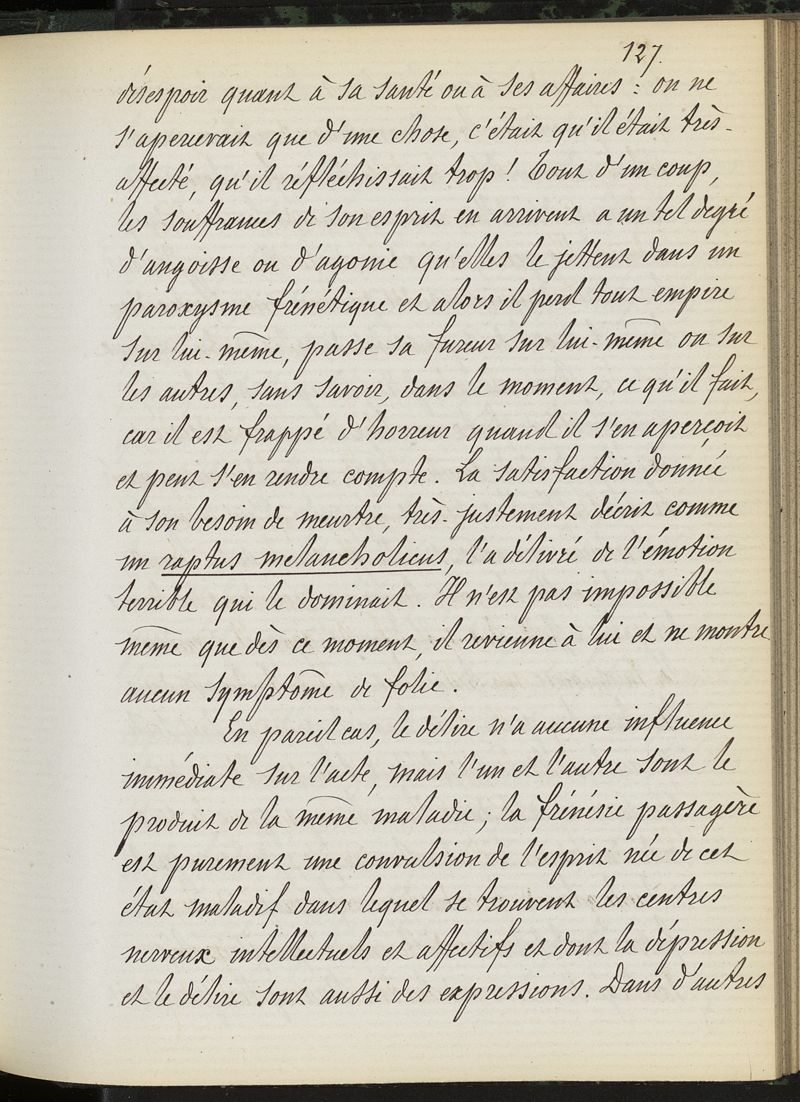 127.
désespoir quant à sa santé ou à ses affaires : on ne
s'apercevait que d'une chose, c'était qu'il était très-
affecté, qu'il réfléchissait trop ! Tout d'un coup,
les souffrances de son esprit en arrivent a un tel degré
d'angoisse ou d'agonie qu'elles le jettent dans un
paroxysme frénétique et alors il perd tout empire
sur lui-même, passe sa fureur sur lui-même ou sur
les autres, sans savoir, dans le moment, ce qu'il fait,
car il est frappé d'horreur quand il s'en aperçoit
et peut s'en rendre compte. La satisfaction donnée
à son besoin de meurtre, très-justement décrit comme
un raptus melancholicus, l'a délivré de l'émotion
terrible qui le dominait. Il n'est pas impossible
même que dès ce moment, il revienne à lui et ne montre
aucun symptôme de folie.
En pareil cas, le délire n'a aucune influence
immédiate sur l'acte, mais l'un et l'autre sont le
produit de la même maladie ; la frénésie passagère
est purement une convulsion de l'esprit née de cet
état maladif dans lequel se trouvent les centres
nerveux intellectuels et affectifs et dont la dépression
et le délire sont aussi des expressions. Dans d'autres